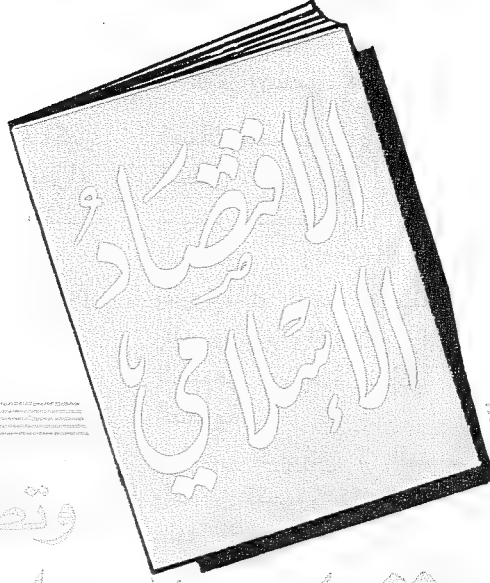 الاقتصادُ
الإسلامي